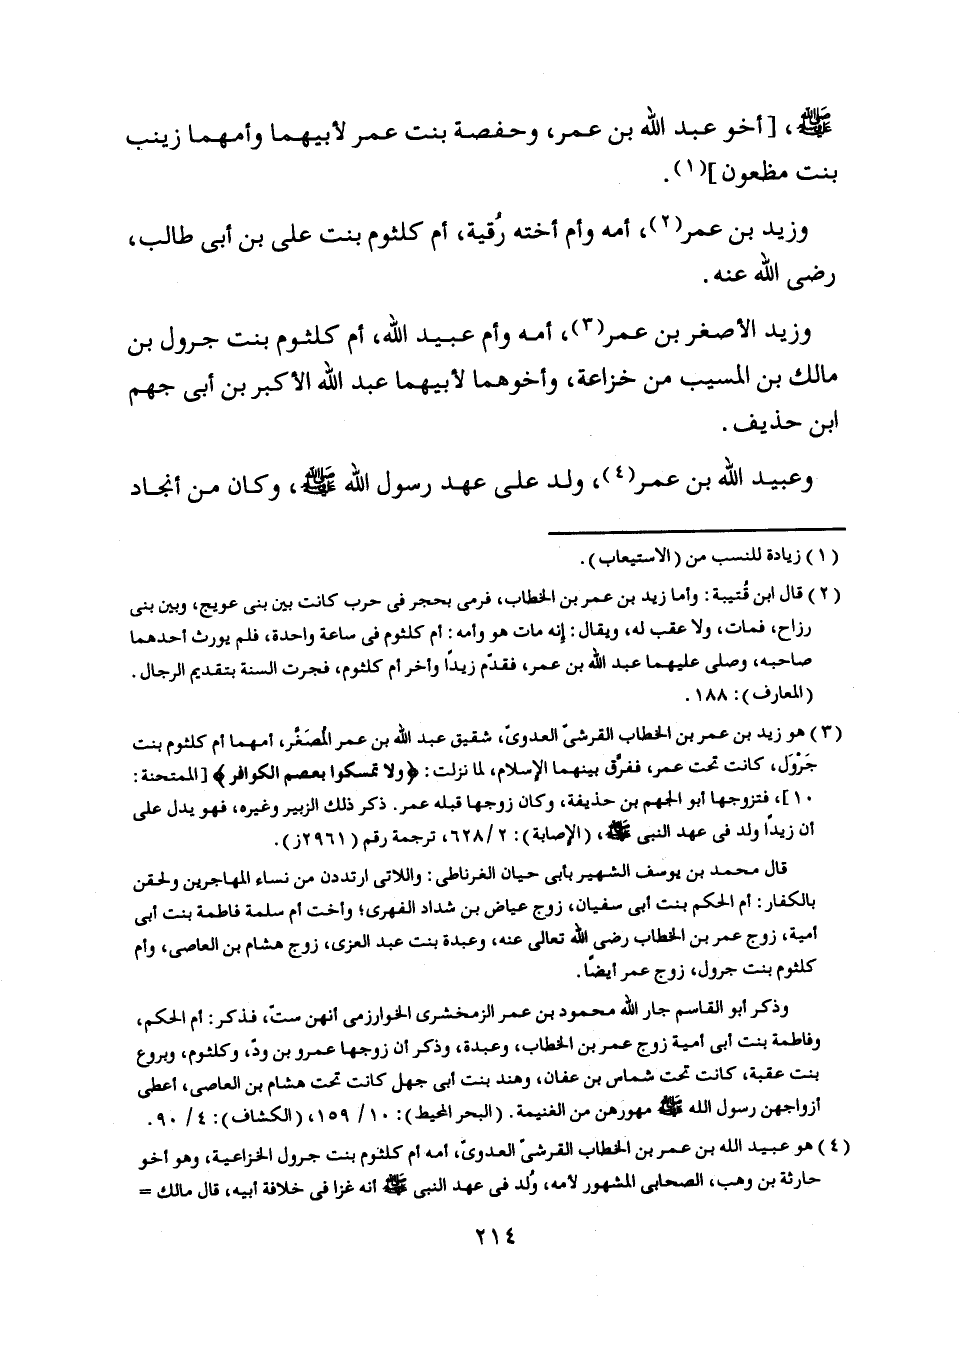 ﷺ، [أخو عبد الله بن عمر، وحفصة بنت عمر لأبيهما وأمهما زينب
بنت مظعون](١).
وزيد بن عمر(٢)، أمه وأم أخته رُقية، أم كلثوم بنت على بن أبى طالب،
رضى الله عنه.
وزيد الأصغر بن عمر(٣)، أمه وأم عبيد الله، أم كلثوم بنت جرول بن
مالك بن المسيب من خزاعة، وأخوهما لأبيهما عبد الله الأكبر بن أبى جهم
ابن حذيف.
وعبيد الله بن عمر(٤)، ولد على عهد رسول الله ﷺ، وكان من أنجاد
(١) زيادة للنسب من (الاستيعاب).
(٢) قال ابن قُتيبة: وأما زيد بن عمر بن الخطاب، فرمى بحجر فى حرب كانت بين بنى عويج، وبين بنى
رزاح، فمات، ولا عقب له، ويقال: إنه مات هو وأمه: أم كلثوم فى ساعة واحدة، فلم يورث أحدهما
صاحبه، وصلى عليهما عبد الله بن عمر، فقدّم زيدًا وأخر أم كلثوم، فجرت السنة بتقديم الرجال.
(المعارف): ١٨٨.
(٣) هو زيد بن عمر بن الخطاب القرشىّ العدوىّ، شقيق عبد الله بن عمر المُصَغَّر، أمهما أم كلثوم بنت
جَرْوَل، كانت تحت عمر، ففرَّق بينهما الإسلام، لما نزلت: ﴿ولا تمسكوا بعصم الكوافر﴾ [الممتحنة:
١٠]، فتزوجها أبو الجهم بن حذيفة، وكان زوجها قبله عمر. ذكر ذلك الزبير وغيره، فهو يدل على
أن زيدًا ولد فى عهد النبى ﷺ، (الإصابة): ٢/ ٦٢٨، ترجمة رقم (٢٩٦١ز).
قال محمد بن يوسف الشهير بأبى حيان الغرناطى: واللاتى ارتددن من نساء المهاجرين ولحقن
بالكفار: أم الحكم بنت أبى سفيان، زوج عياض بن شداد الفهرى؛ وأخت أم سلمة فاطمة بنت أبى
أمية، زوج عمر بن الخطاب رضى الله تعالى عنه، وعبدة بنت عبد العزى، زوج هشام بن العاصى، وأم
كلثوم بنت جرول، زوج عمر أيضًا.
وذكر أبو القاسم جار الله محمود بن عمر الزمخشرى الخوارزمى أنهن ستّ، فذكر: أم الحكم،
وفاطمة بنت أبى أمية زوج عمر بن الخطاب، وعبدة، وذكر أن زوجها عمرو بن ودّ، وكلثوم، وبروع
بنت عقبة، كانت تحت شماس بن عفان، وهند بنت أبى جهل كانت تحت هشام بن العاصى، أعطى
أزواجهن رسول الله ﷺ مهورهن من الغنيمة. (البحر المحيط): ١٠/ ١٥٩، (الكشاف): ٤/ ٩٠.
(٤) هو عبيد الله بن عمر بن الخطاب القرشىّ العدوىّ، أمه أم كلثوم بنت جرول الخزاعية، وهو أخو
حارثة بن وهب، الصحابى المشهور لأمه، وُلد فى عهد النبى ﷺ أنه غزا فى خلافة أبيه، قال مالك =
٢١٤